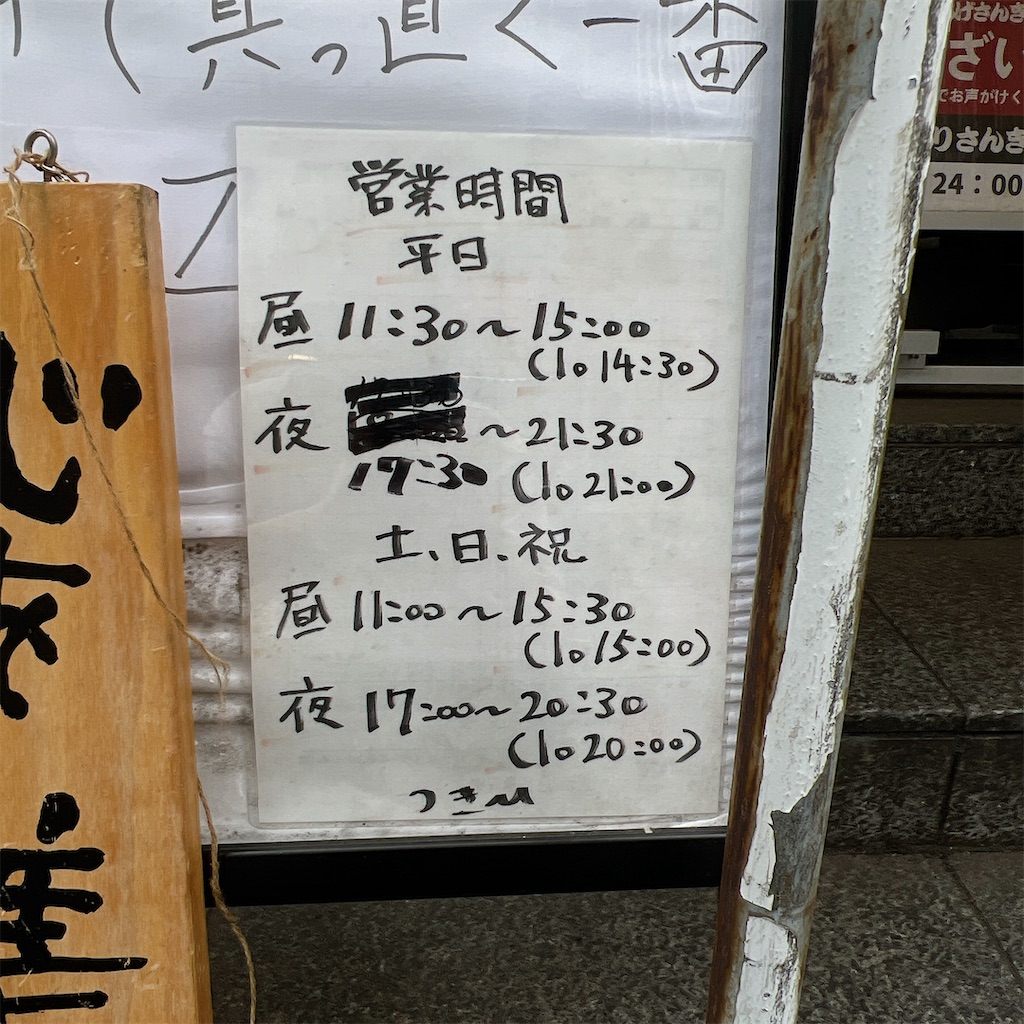 (真っ直ぐ一番
営業時間
平日
昼 11:30〜15:00
(lo 14:30)
夜 〜21:30
17:30 (lo 21:00)
土、日、祝
昼 11:00〜15:30
(lo 15:00)
夜 17:00〜20:30
(lo 20:00)
げさんき
ざい
でお声がけく
りさんき
24:00